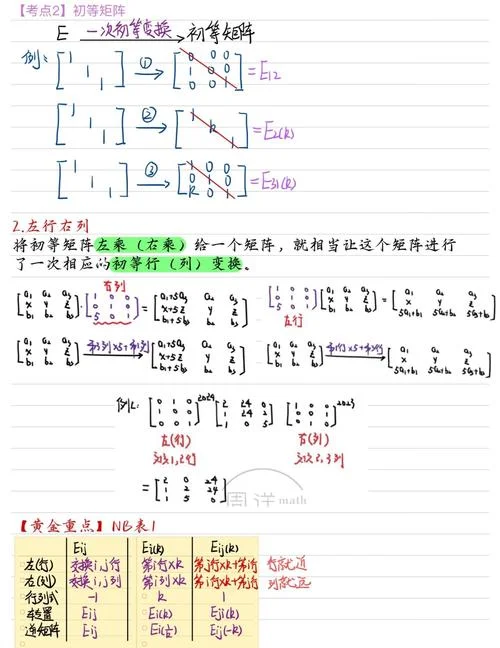 【考点2】初等矩阵
E 一次初等变换 初等矩阵
例: [1 1 1] ① [0 0 0 1 0 0 0 0 1] = E12
[1 1 1] ② [1 k 1] = E2(k)
[1 1 1] ③ [1 0 0 0 1 0 k 0 1] = E31(k)
2.左行右列
将初等矩阵左乘（右乘）给一个矩阵，就相当让这个矩阵进行
了一次相应的初等行（列）变换。
右列
[a1 a2 a3 x y z b1 b2 b3] · [1 0 0 0 1 0 5 0 1] = [a1+5a3 a2 a3 x+5z y z b1+5b3 b2 b3]
[1 0 0 0 1 0 5 0 1] [a1 a2 a3 x y z b1 b2 b3] = [a1 a2 a3 x y z 5a1+b1 5a2+b2 5a3+b3]
左行
[a1 a2 a3 x y z b1 b2 b3] 第3列x5+第1列 [a1+5a3 a2 a3 x+5z y z b1+5b3 b2 b3]
[a1 a2 a3 x y z b1 b2 b3] 第1行x5+第3行 [a1 a2 a3 x y z 5a1+b1 5a2+b2 5a3+b3]
例2: 2024 2023
左(行) 右(列)
1,2行 2,3列
= [2 0 24 1 2 24 1 5 0]
周洋math
【黄金重点】NB表1
Eij Ei(k) Eij(k)
左(行) 交换i,j行 第i行xk 第j行xk+第i行
右(列) 交换i,j列 第i列xk 第i列xk+第j列
行列式 -1 k 1
转置 Eij Ei(k) Eji(k)
逆矩阵 Eij Ei(1/k) Eij(-k)